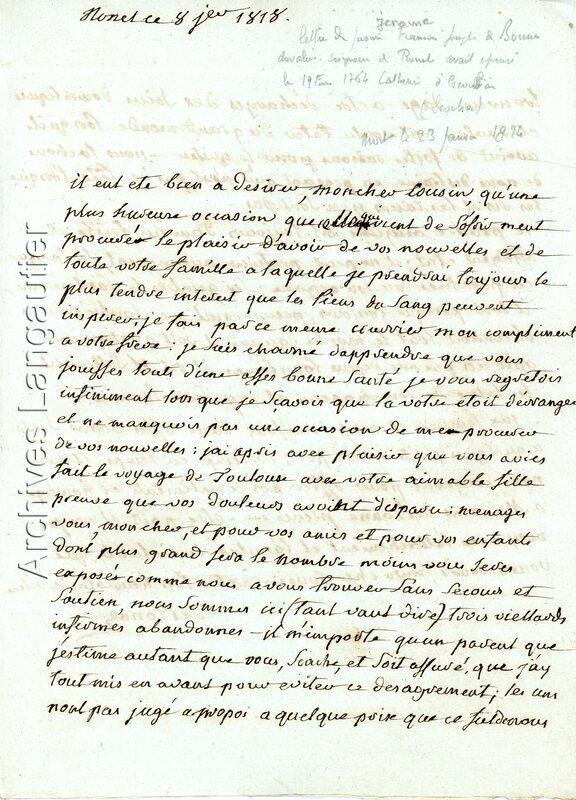 Ronel ce 8 jer 1818.
jerome
Lettre de François Joseph de Bonne
chevalier seigneur de Ronel avait épousé
le 19 1764 Catherine
mort le 23 janvier 1824
il eut eté bien a desirer, moncher Cousin, qu'une
plus heureuse occasion que celle qui vient de s'offrir meut
procurée le plaisir d'avoir de vos nouvelles et de
toute votre famille a laquelle je prendrai toujours le
plus tendre interet que les liens du sang peuvent
inspirer; je fais par ce meme courrier mon compliment
a votre frere; je suis charmé d'apprendre que vous
jouisses touts d'une asses bonne santé je vous regretois
infiniment lors que je scavois que la votre etoit derrangée
et ne manquois pas une occasion de me procurer
de vos nouvelles; jai apris avec plaisir que vous avies
fait le voyage de Toulouse avec votre aimable fille
preuve que vos douleurs avoint disparu; menages
vous, moncher, et pour vos amis et pour vos enfants
dont plus grand sera le nombre moins vous seres
exposés comme nous a vous trouver sans secours et
soutien, nous sommes ici (tant vaut dire) trois viellards
infirmes abandonnes - il m'importe qu'un parent que
j'estime autant que vous, scache, et soit assuré, que j'ay
tout mis en avant pour eviter ce desagrement; les uns
nont pas jugé apropos a quelque prix que ce fut de nous
Archives Langautier